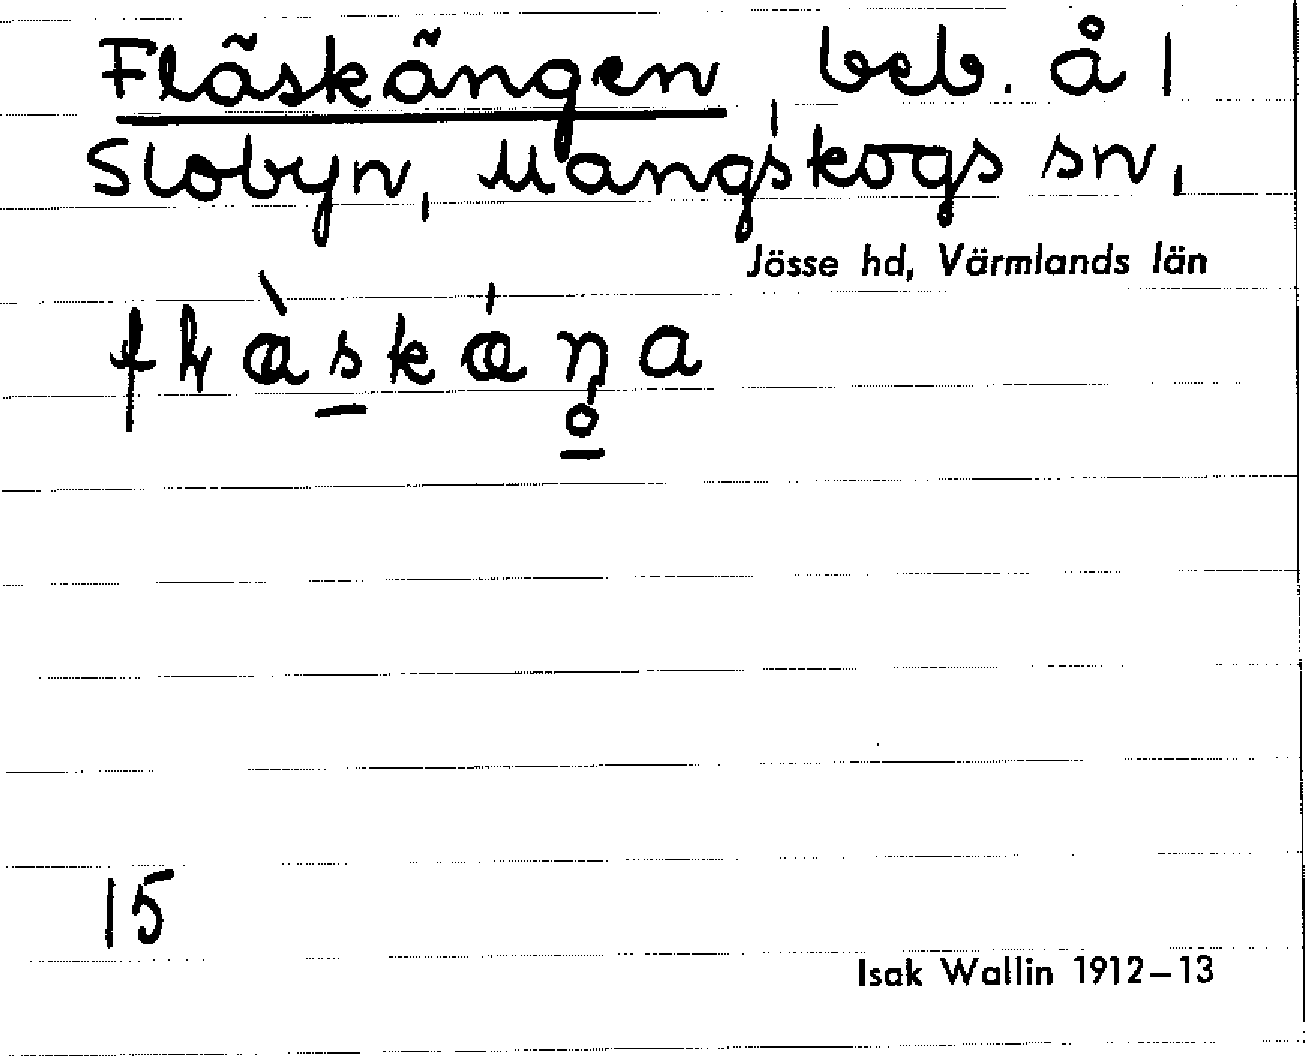 Fläskängen, beb. å 1
Slobyn, Mangskogs sn,
Jösse hd, Värmlands län
15
Isak Wallin 1912–13